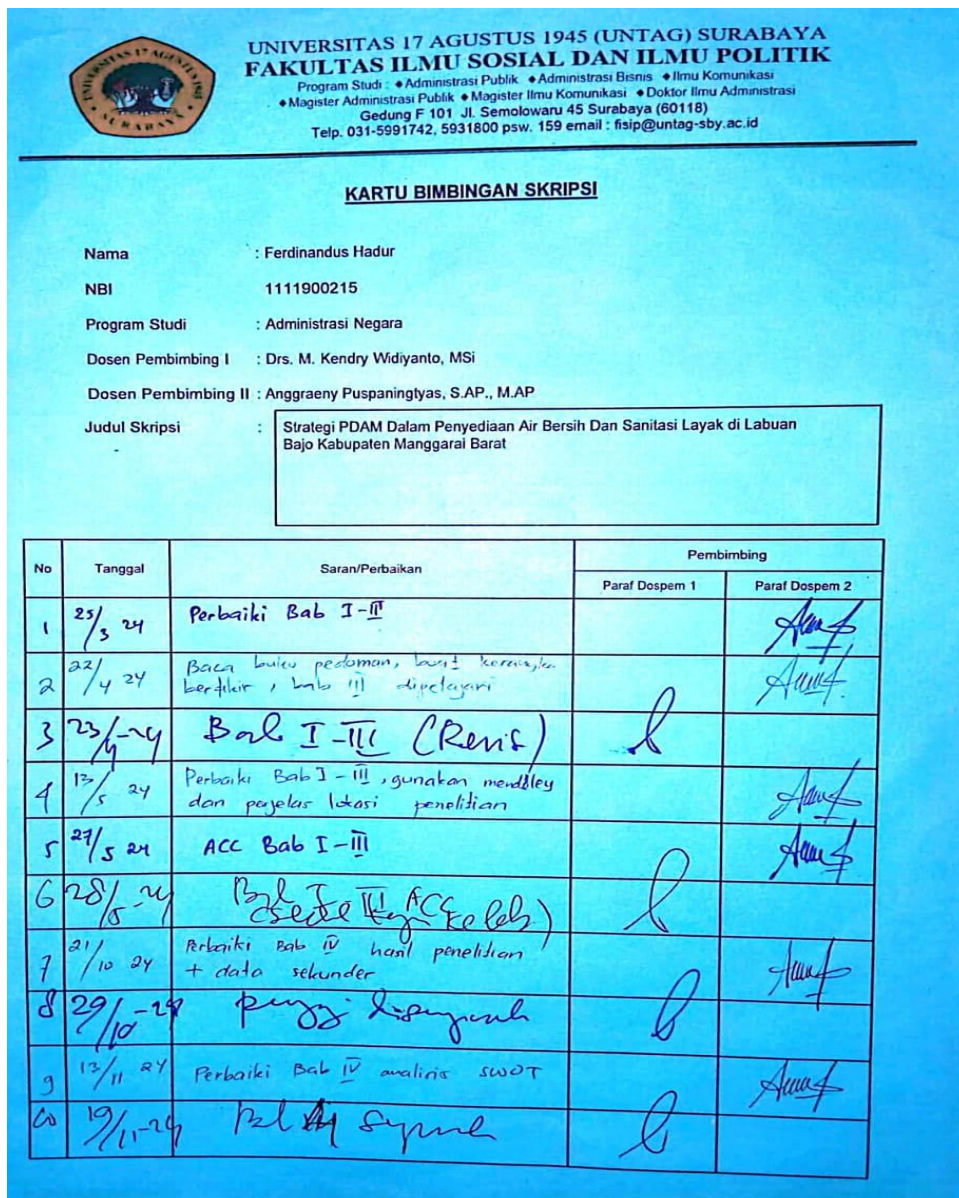 UNIVERSITAS 17 AGUSTUS 1945 (UNTAG) SURABAYA
FAKULTAS ILMU SOSIAL DAN ILMU POLITIK
Program Studi : ♦Administrasi Publik ♦Administrasi Bisnis ♦Ilmu Komunikasi
♦Magister Administrasi Publik ♦Magister Ilmu Komunikasi ♦Doktor Ilmu Administrasi
Gedung F 101 Jl. Semolowaru 45 Surabaya (60118)
Telp. 031-5991742, 5931800 psw. 159 email : fisip@untag-sby.ac.id
UNIVERSITAS 17 AGUSTUS 1945
SURABAYA
KARTU BIMBINGAN SKRIPSI
Nama : Ferdinandus Hadur
NBI 1111900215
Program Studi : Administrasi Negara
Dosen Pembimbing I : Drs. M. Kendry Widiyanto, MSi
Dosen Pembimbing II : Anggraeny Puspaningtyas, S.AP., M.AP
Judul Skripsi : Strategi PDAM Dalam Penyediaan Air Bersih Dan Sanitasi Layak di Labuan
Bajo Kabupaten Manggarai Barat
No Tanggal Saran/Perbaikan Pembimbing
Paraf Dospem 1 Paraf Dospem 2
1 25/3 24 Perbaiki Bab I-III
2 22/4 24 Baca buku pedoman, buat kerangka
berfikir, bab III dipelajari
3 23/4-24 Bab I-III (Revisi)
4 13/5 24 Perbaiki Bab I-III, gunakan mendeley
dan perjelas lokasi penelitian
5 27/5 24 ACC Bab I-III
6 28/5-24 Bab I III ACC
7 21/10 24 Perbaiki Bab IV hasil penelitian
+ data sekunder
8 29/10-24
9 13/11 24 Perbaiki Bab IV analisis SWOT
10 19/11-24